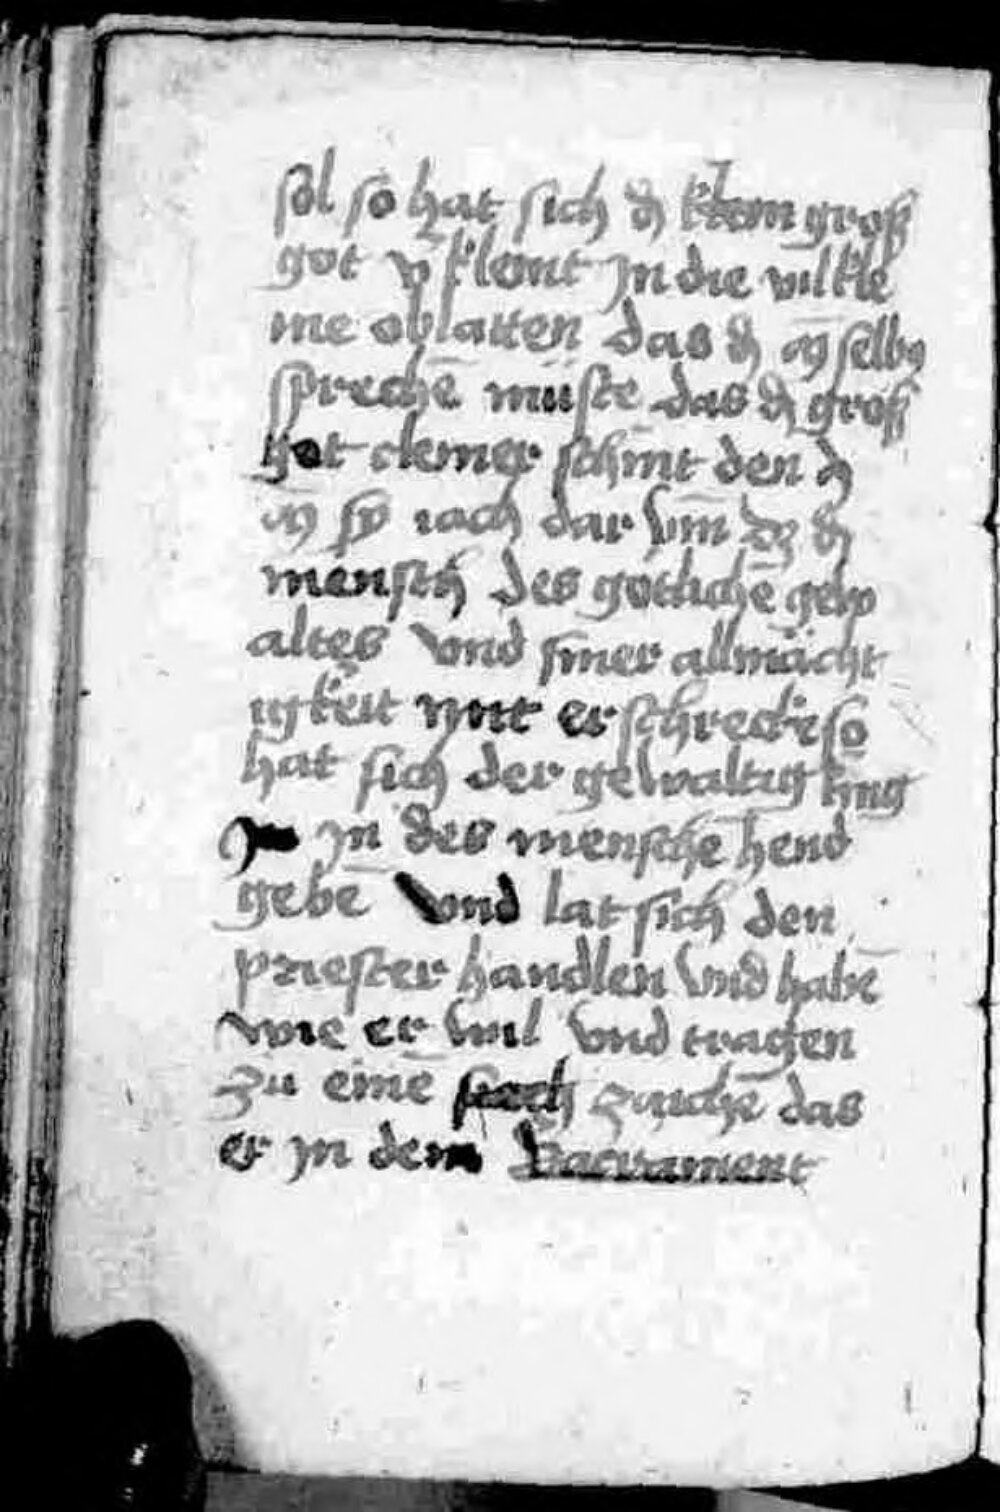 sol so hat sich d̕ klein groß
got v̕kleint Jn die vil kle
ine oblatten das d̕ mē selbs
sprechē müste das d̕ groß
got cleiner schint den d̕
mē sy nach dar vm̄ dz d̕
mensch des gotlichē gew
altes vnd siner allmächt
igkeit nyt erschrecke so
hat sich der gewaltig king
Jn des menschē hend
gebē vnd lat sich den
priester handlen vnd habē
wie er wil vnd tragen
zu eine zaichē das
er jn dem Sacrament